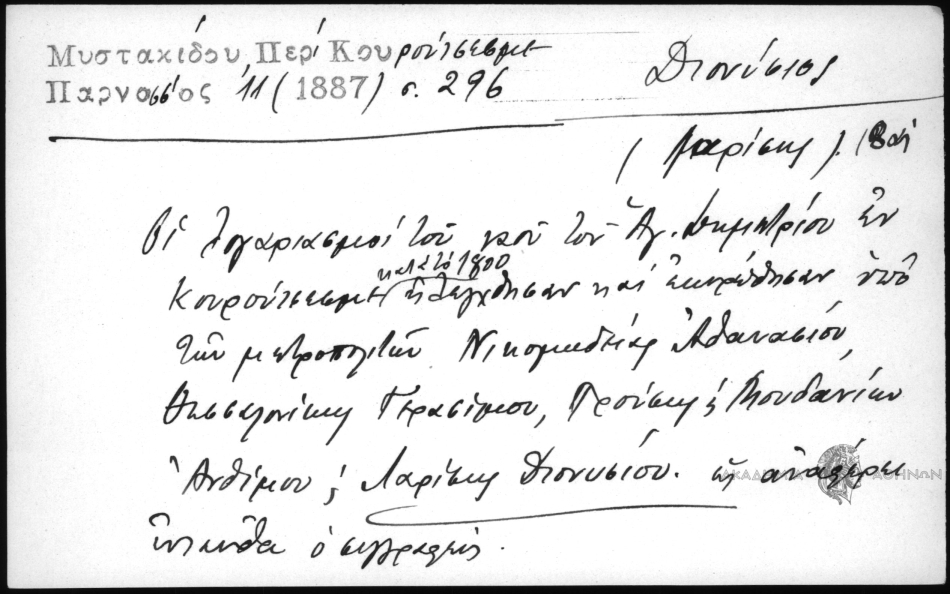 Μυστακίδου, Περί Κουρούτσεσμε
Παρνασσός 11 (1887) σ. 296
Διονύσιος
(Λαρίσης).
Οἱ λογαριασμοί τοῦ ναοῦ τοῦ Ἁγ. Δημητρίου ἐν
κατά τό 1800
Κουρούτσεσμε ἠλέγχθησαν καί ἐκυρώθησαν ὑπό
τῶν μητροπολιτῶν Νικομηδείας Ἀθανασίου,
Θεσσαλονίκης Γερασίμου, Προύσης ἤ Μουδανίων
Ἀνθίμου ἤ Λαρίσης Διονυσίου. ὡς ἀναφέρει
ἐνταῦθα ὁ συγγραφεύς.
ΑΚΑΔΗΜΙΑ ΑΘΗΝΩΝ